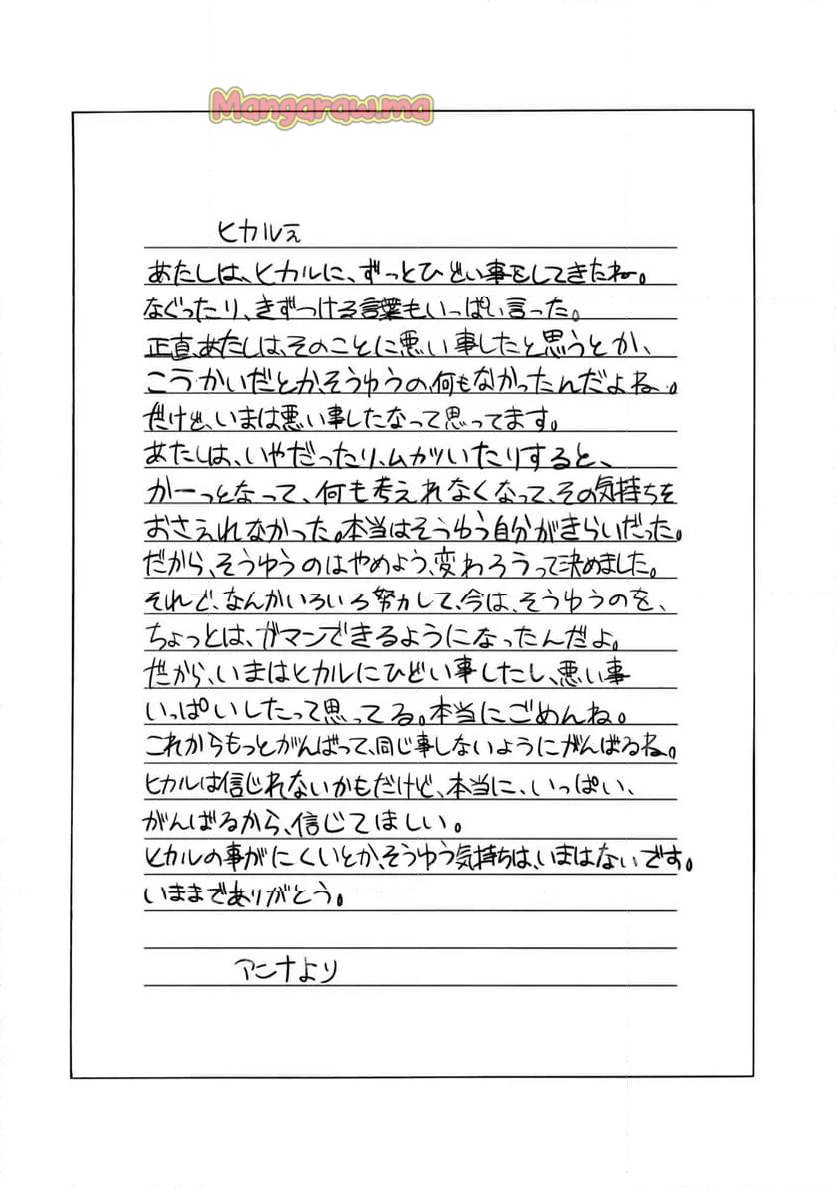 Mangaraw.ma
ヒカルぇ
あたしは、ヒカルに、ずっとひどい事をしてきたねー。
なぐったり、きずつける言葉もいっぱい言った。
正直、あたしは、そのことに悪い事したと思うとか、
こうかいだとか、そうゆうの、何もなかったんだよね。
だけど、いまは悪い事したなって思ってます。
あたしは、いやだったり、ムカツいたりすると、
かーっとなって、何も考えれなくなって、その気持ちを
おさえれなかった。本当はそうゆう自分がきらいだった。
だから、そうゆうのはやめよう、変わろうって決めました。
それど、なんかいろいろ努力して、今は、そうゆうのを、
ちょっとは、ガマンできるようになったんだよ。
だから、いまはヒカルにひどい事したし、悪い事
いっぱいしたって思ってる。本当にごめんね。
これからもっとがんばって、同じ事しないようにがんばるね。
ヒカルは信じれないかもだけど、本当に、いっぱい、
がんばるから、信じてほしい。
ヒカルの事がにくいとか、そうゆう気持ちは、いまはないです。
いままでありがとう。
アンナより